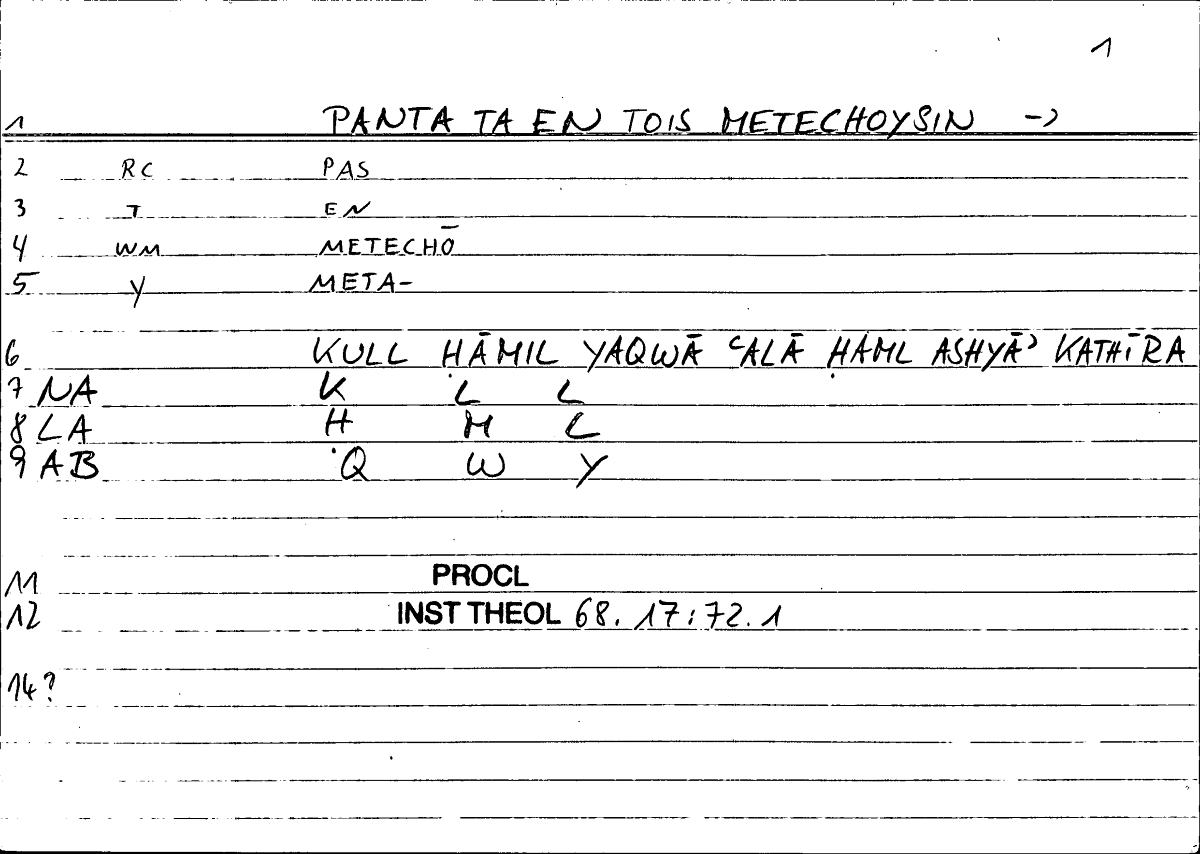 1
1 PANTA TA EN TOIS METECHOYSIN →
2 RC PAS
3 T EN
4 WM METECHŌ
5 Y META-
6 KULL ḤĀMIL YAQWĀ ʿALĀ ḤAML ASHYĀʾ KATHĪRA
7 NA K L L
8 LA Ḥ M L
9 AB Q W Y
11 PROCL
12 INST THEOL 68. 17:72.1
14?